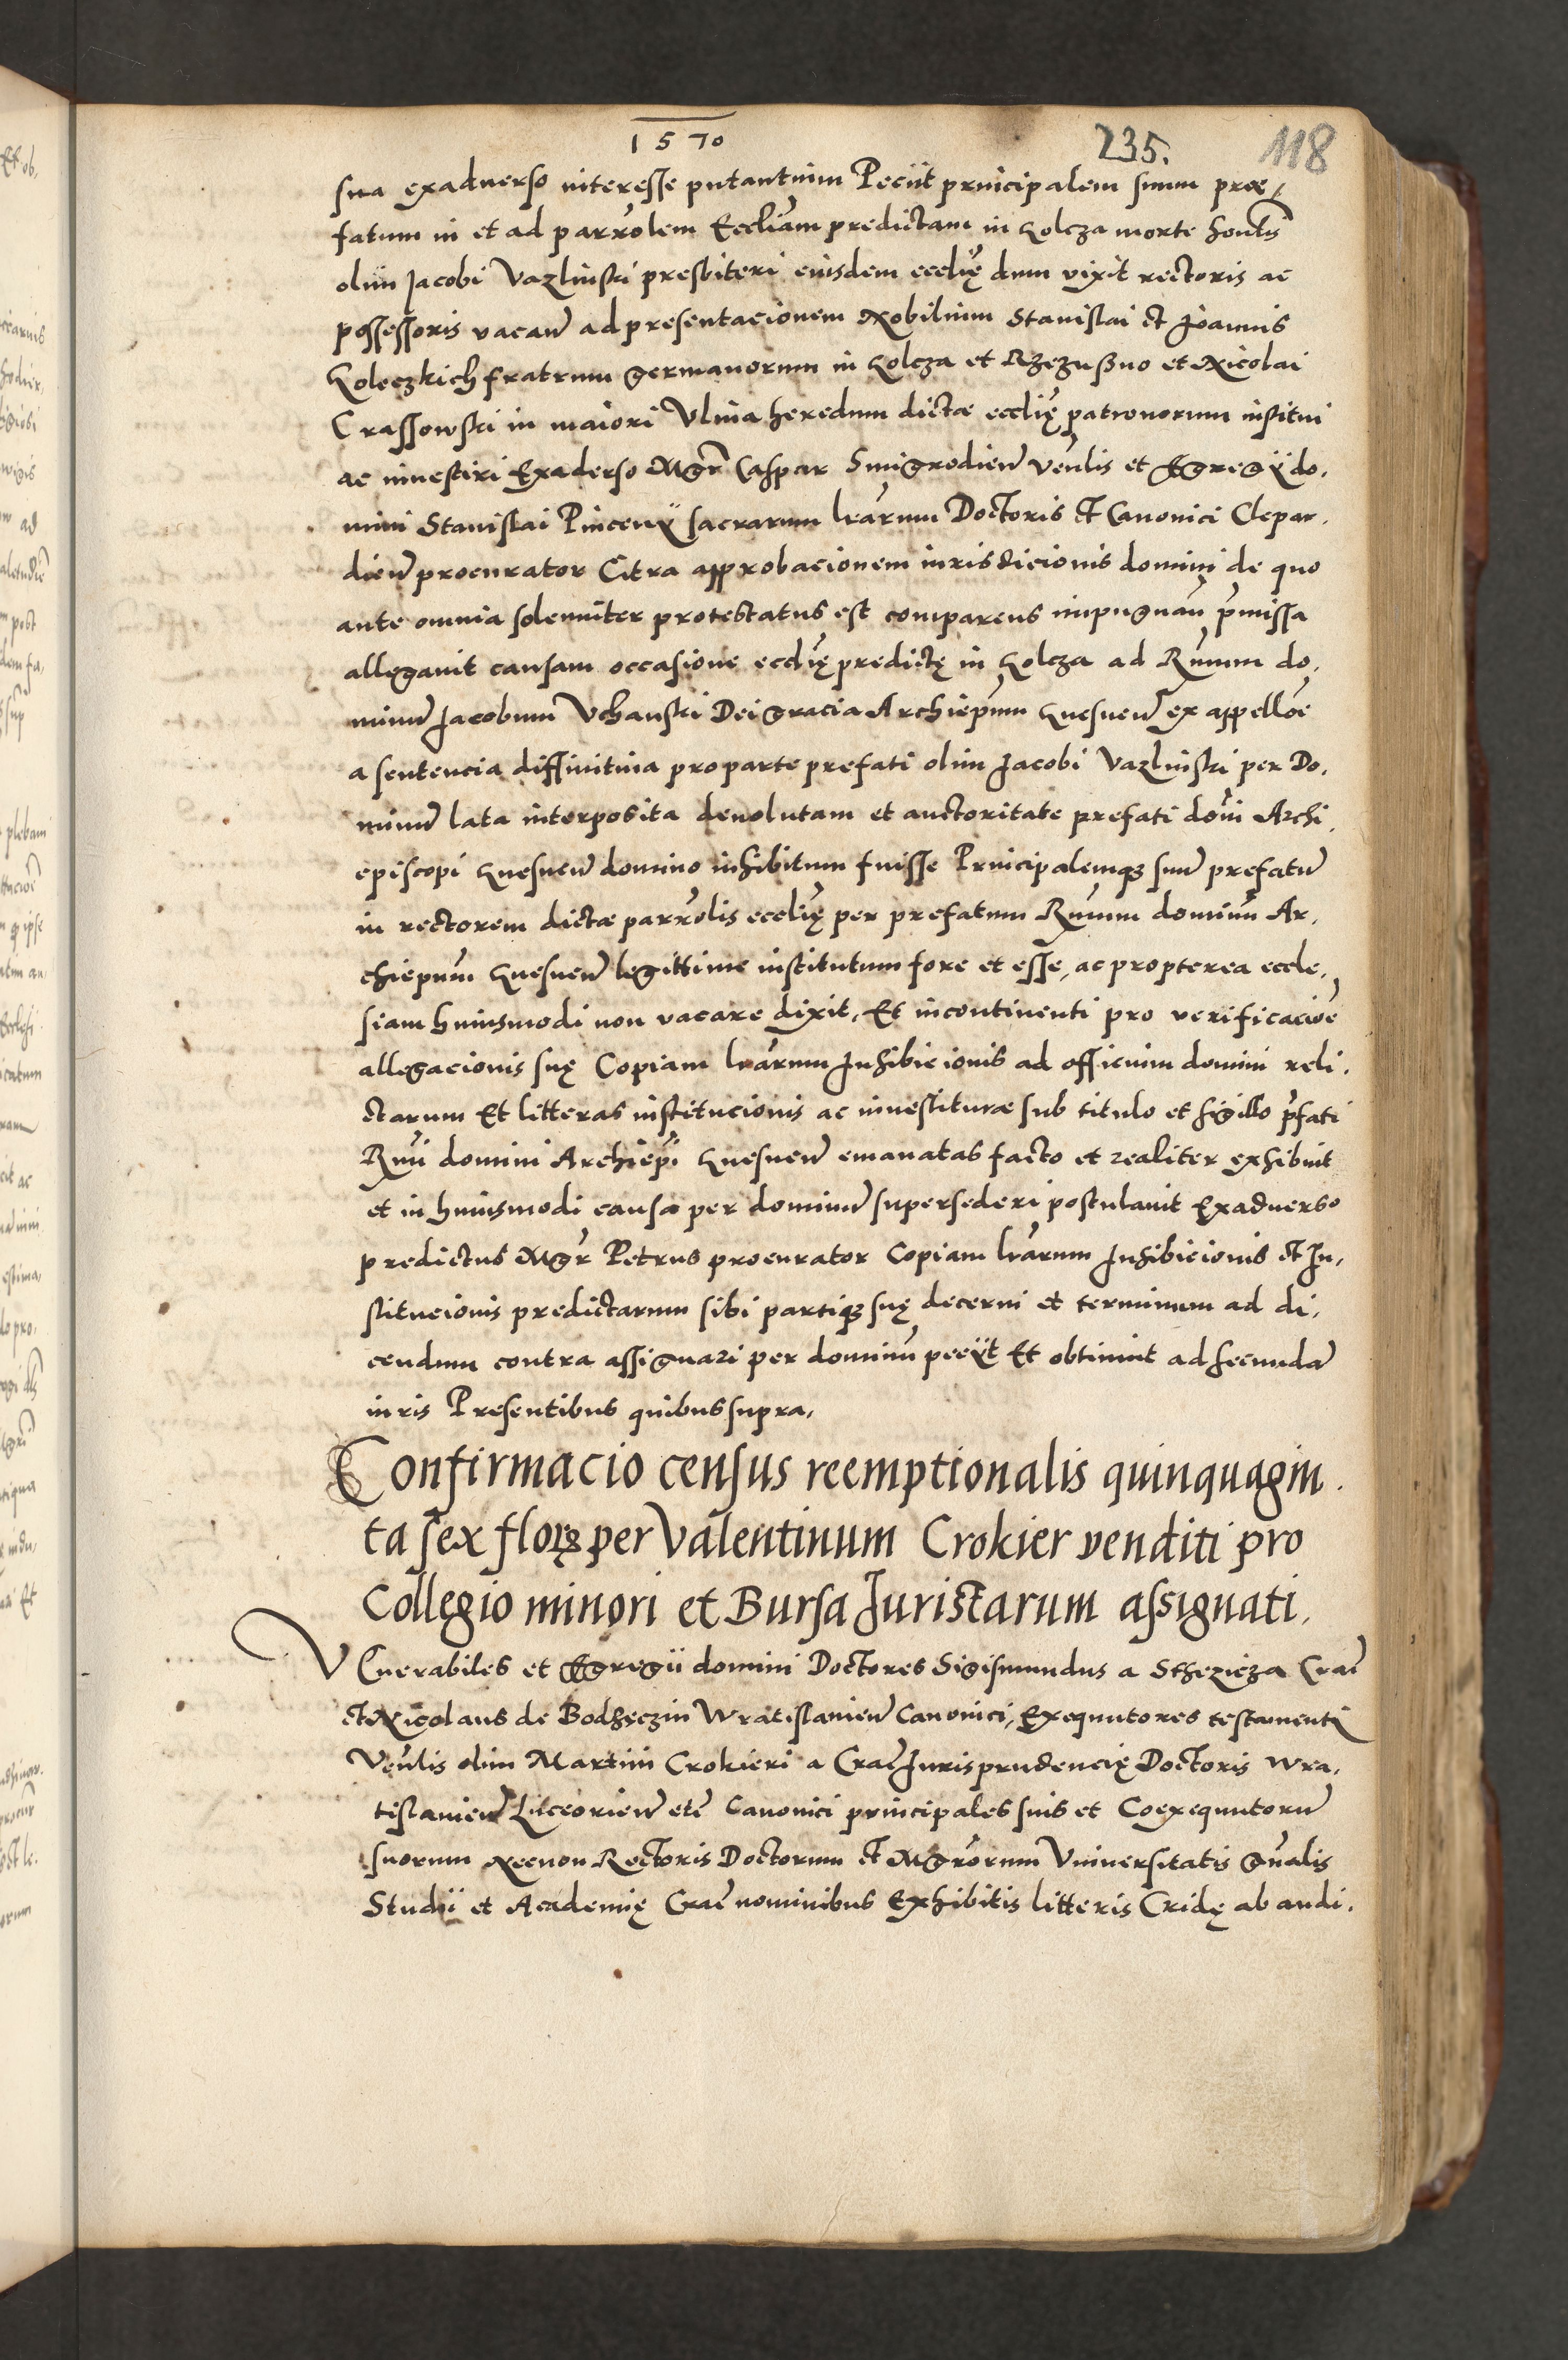 1570
235.
118
sua exaduerso interesse putantium Peciit principalem suum præ,
fatum in et ad parrolem Eccliam predictam in Golcza morte honlis
olim Jacobi Vazlinski presbiteri eiusdem eccliȩ dum vixit rectoris ac
possessoris vacan̄ ad presentacionem Nobilium Stanislai et Joannis
Goleczkich fratrum germanorum in Golcza et Rzezußno et Nicolai
Crassowski in maiori Vlina heredum dictæ eccliȩ patronorum institui
ac inuestiri Exaderso Mgr̄ Caspar Smigrodien̄ veñlis et Egregÿ do,
mini Stanislai Pincenÿ sacrarum lrarum Doctoris et Canonici Clepar,
dien̄ procurator Citra approbacionem iurisdicionis domini de quo
ante omnia solemniter protestatus est comparens impugnan̄ p̄missa
allegauit causam occasione eccliȩ predictȩ in Golcza ad Rm̄um do,
minum̄ Jacobum Vchanski Dei gracia Archiep̄um Gnesnen̄ ex appellōe
a sentencia diffinitiua pro parte prefati olim Jacobi Vazlinski per Do,
minum̄ lata interposita deuolutam et auctoritate prefati dōni Archi,
episcopi Gnesnen̄ domino inhibitum fuisse Principalemqȝ suū prefatū
in rectorem dictæ parrōlis eccliȩ per prefatum Rm̄um dominū Ar,
chiepūm Gnesnen̄ legittime institutum fore et esse, ac propterea eccle,
siam huiusmodi non vacare dixit, Et incontinenti pro verificaciōe
allegacionis suȩ Copiam lrārum Inhibicionis ad officium domini reli,
ctarum Et litteras institucionis ac inuestituræ sub titulo et sigillo p̄fati
Rmī domini Archiep̄i Gnesnen̄ emanatas facto et realiter exhibuit
et in huiusmodi causa per dominū supersederi postulauit Exaduerso
predictus Mgr̄ Petrus procurator Copiam lrārum Inhibicionis et In,
stitucionis predictarum sibi partiqȝ suȩ decerni et terminum ad di,
cendum contra assignari per dominū peciit Et obtinuit ad secundā
iuris Presentibus quibus supra,
Confirmacio census reemptionalis quinquagin,
ta sex florꝝ per Valentinum Crokier venditi pro
Collegio minori et Bursa Juristarum assignati,
VEnerabiles et Egregii domini Doctores Sigismundus a Sthezicza Crac̄
et Nicolaus de Bodzȩczin Wratislauien̄ Canonici, Exequutores testamenti
Veñlis olim Martini Crokieri a Crac̄ Jurisprudenciȩ Doctoris Wra,
tislauien̄ Luceorien̄ etc̄ Canonici principales suis et Coexequutorū
suorum Necnon Rectoris Doctorum et Mgrōrum Vniuersitatis gn̄alis
Studii et Academiȩ Crac̄ nominibus Exhibitis litteris Cridȩ ab audi,